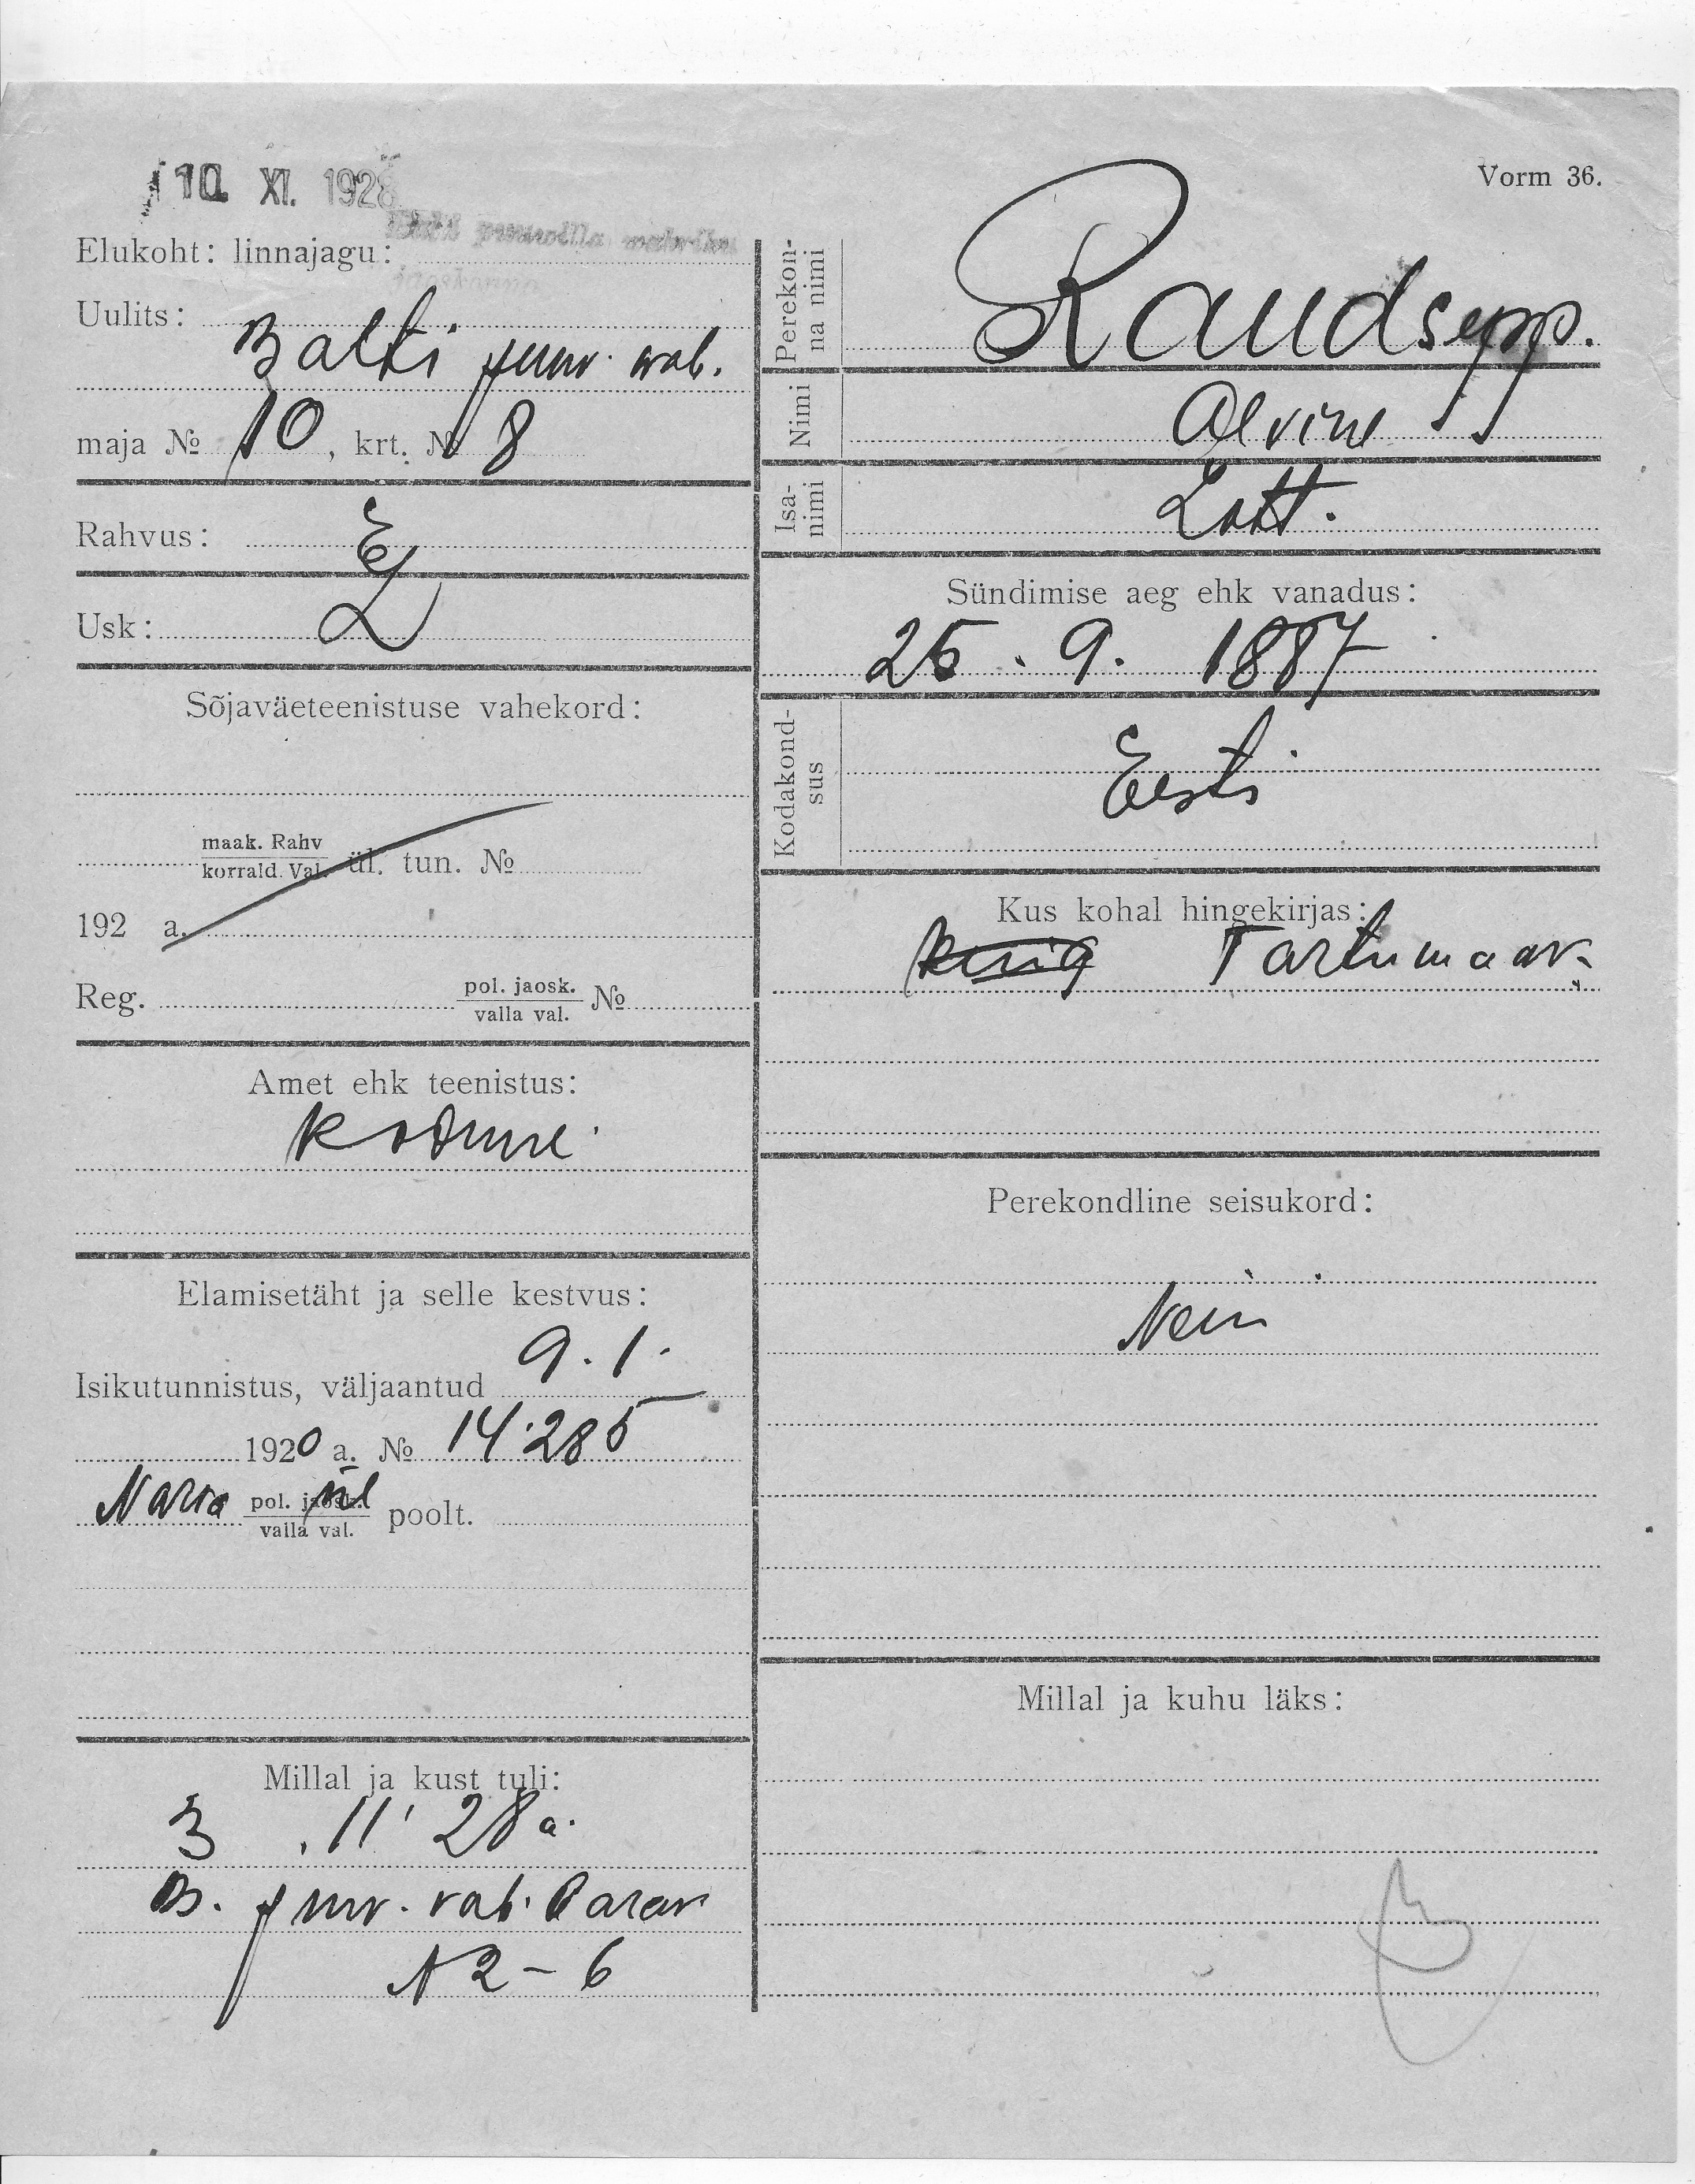 10. XI. 1928
Vorm 36.
Balti puuvilla vabriku
jaoskonna
Elukoht: linnajagu:
Uulits:
Balti puuv. wab.
maja № 10, krt. № 8
Rahvus: E
Usk: L
Sõjaväeteenistuse vahekord:
maak. Rahv
korrald. Val. ül. tun. №
192 a.
Reg. pol. jaosk. №
valla val.
Amet ehk teenistus:
Kodune.
Elamisetäht ja selle kestvus:
9. 1.
Isikutunnistus, väljaantud
1920 a. № 14285
Narva pol. jaosk. ül poolt.
valla val.
Millal ja kust tuli:
3. 11 28 a.
B. puuv. vab. Parav
N 2 - 6
Perekon-
na nimi
Raudsepp.
Nimi
Alvine
Isa-
nimi
Lott.
Sündimise aeg ehk vanadus:
25. 9. 1887
Kodakond-
sus
Eesti
Kus kohal hingekirjas:
Tartumaa
Perekondline seisukord:
Nein
Millal ja kuhu läks: